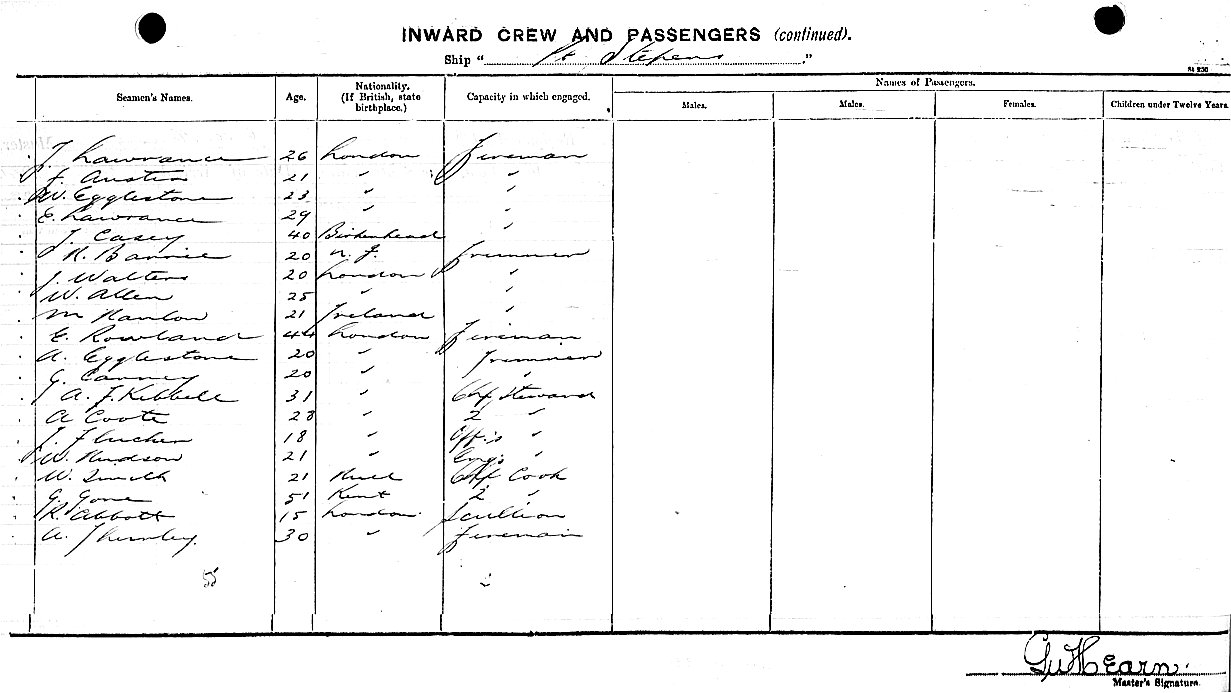 INWARD CREW AND PASSENGERS (continued).
Ship " Pt Stepens ."
Seamen's Names. Age. Nationality. (If British, state birthplace.) Capacity in which engaged. Names of Passengers.
Males. Males. Females. Children under Twelve Years.
J Lawrance 26 London fireman
F. Austin 21 " "
W. Egglestone 23 " "
E. Lawrance 29 " "
J. Casey 40 Birkenhead "
R. Barrie 20 N. Z. Trimmer
J. Walters 20 London "
W. Allen 25 " "
M Hanlon 21 Ireland "
E. Rowland 44 London Fireman
A. Egglestone 20 " Trimmer
G. Canney 20 " "
A. J. Kibbell 31 " Chf Steward
A Coote 28 " 2 "
J. 18 " Off:s "
W. Hudson 21 " Eng:s "
W. Smith 21 Hull Chf Cook
G. Gore 51 Kent 2 "
R. Abbott 15 London Scullion
A. Thurnley. 30 " fireman
G W Hearn
Master's Signature.